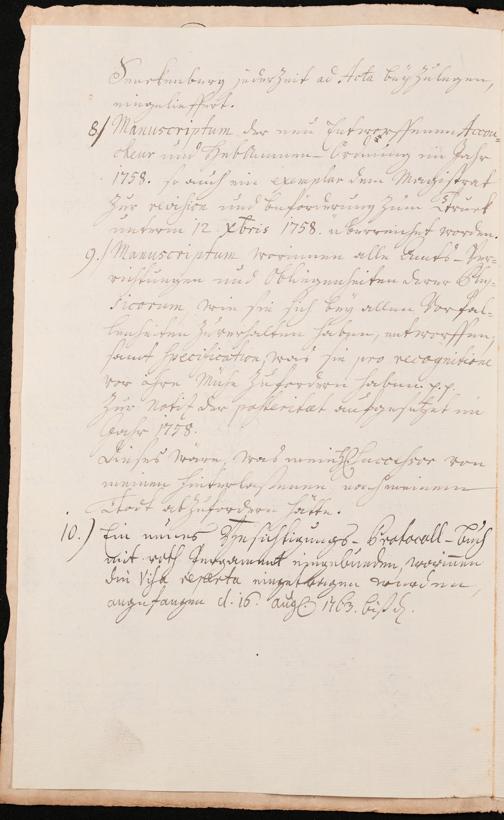 Senckenburg jederzeit ad Acta beyzulegen,
eingelieffert.
8/ Manuscriptum der neu Entworffenen Accou-
cheur und Hebammen-Ordnung im Jahr
1758. so auch ein exemplar dem Magistrat
zur revision und beförderung zum Druck
unterm 12. Xbris 1758. überreichet worden.
9.) Manuscriptum worinnen alle Amts-Ver-
richtungen und Obliegenheiten derer Phy-
sicorum, wie sie sich bey allen Vorfal-
lenheiten zu verhalten haben, entworffen,
samt specification, was sie pro recognitione
vor ihre Mühe zu fordern haben p.p.
zur Notiz der posteritaet aufgesetzet im
Jahr 1758.
Dieses wäre, was mein Successor von
meinen hinterlassenen nach meinem
Todt abzufordern hätte.
10.) Ein neues Besichtigungs-Protocoll-Buch
mit roth Pergament eingebunden, worinnen
die visa reperta eingetragen werden,
angefangen d. 16. aug. 1763. biß